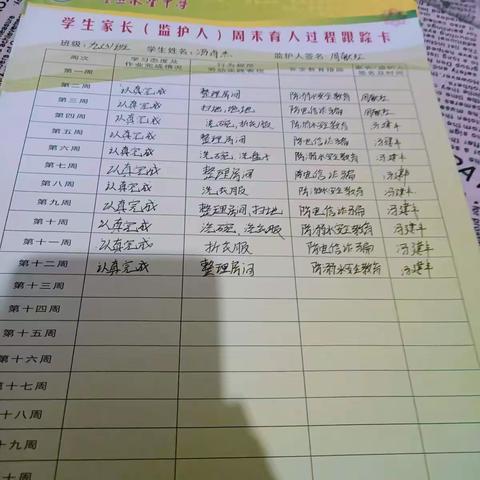 学生家长（监护人）周末育人过程跟踪卡
班级: 学生姓名: 监护人签名 周敏红
周次 学习态度及作业完成情况 行为规范劳动实践表现 安全教育措施
第一周
第二周 认真完成 整理房间 防溺水安全教育 周敏红
第三周 认真完成 扫地、拖地 防电信诈骗 周敏红
第四周 认真完成 洗碗、折衣服 防溺水安全教育 冯建丰
第五周 认真完成 整理房间 防电信诈骗 冯建丰
第六周 认真完成 洗碗、洗盘子 防溺水安全教育 冯建丰
第七周 认真完成 整理房间 防电信诈骗 冯建丰
第八周 认真完成 洗衣服 防溺水安全教育 冯建丰
第九周 认真完成 整理房间、扫地 防电信诈骗 冯建丰
第十周 认真完成 洗碗、洗衣服 防溺水安全教育 冯建丰
第十一周 认真完成 折衣服 防电信诈骗 冯建丰
第十二周 认真完成 整理房间 防溺水安全教育 冯建丰
第十三周
第十四周
第十五周
第十六周
第十七周
第十八周
第十九周
第二十周